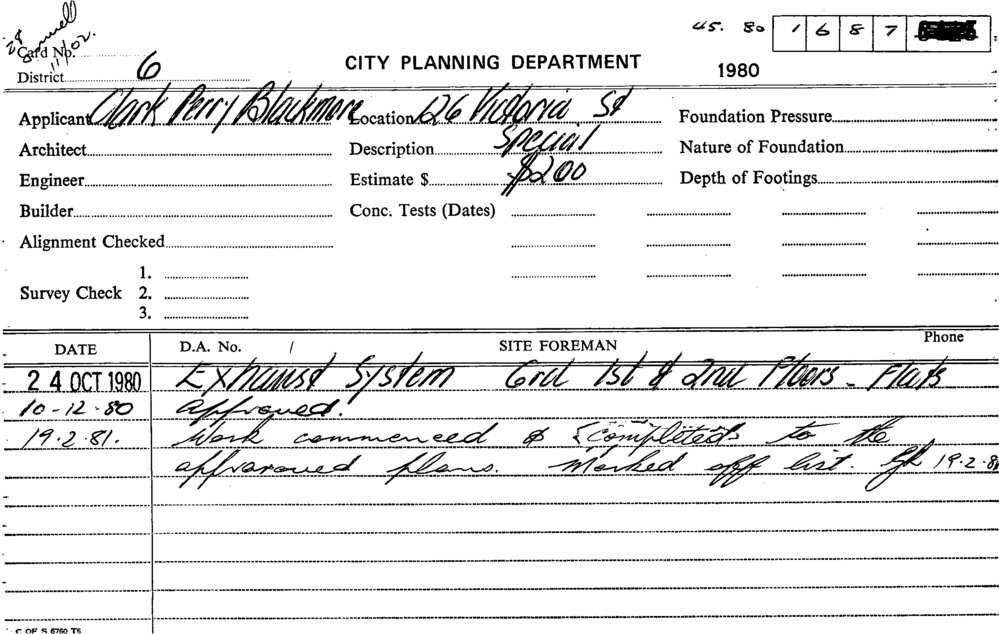 45. 80 1 6 8 7
Card No.
11/02.
District 6
CITY PLANNING DEPARTMENT
1980
Applicant Clark Perry Blackmore Location 126 Victoria St Foundation Pressure
Architect Description Special Nature of Foundation
Engineer Estimate $ $200 Depth of Footings
Builder Conc. Tests (Dates)
Alignment Checked
Survey Check 1.
2.
3.
DATE D.A. No. / SITE FOREMAN Phone
24 OCT 1980 Exhaust System Grd 1st & 2nd Floors - Flats
10-12-80 approved.
19.2.81. Work commenced & {completed} to the
approroued plans. Marked off list. 19.2.81
C OF S 6760 T5